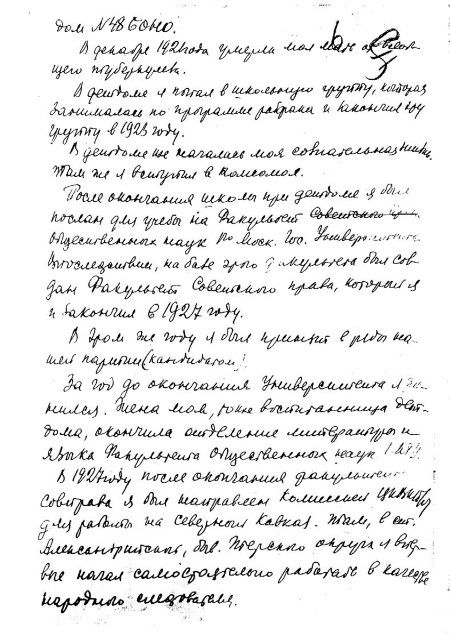 дом № 48 БОНО.
В декабре 1921 года умерла моя мать от
щего туберкулеза.
В детдоме я попал в школьную группу, которая
занималась по программе рабфака и закончил эту
группу в 1923 году.
В детдоме же началась моя сознательная жизнь.
Там же я вступил в комсомол.
После окончания школы при детдоме я был
послан для учебы на Факультет Советского
общественных наук Моск. Гос. Университета
Впоследствии, на базе этого факультета был соз-
дан Факультет Советского права, который я
и закончил в 1927 году.
В этом же году я был принят в ряды на-
шей партии (кандидатом)
За год до окончания Университета я же-
нился. Жена моя, тоже воспитанница дет-
дома, окончила отделение литературы и
языка Факультета общественных наук 1 МГУ.
В 1927 году после окончания факультета
совправа я был направлен комиссией
для работы на Северный Кавказ. Там, в ст.
Александрийской, быв. Терского округа я впер-
вые начал самостоятельно работать в качестве
народного следователя.